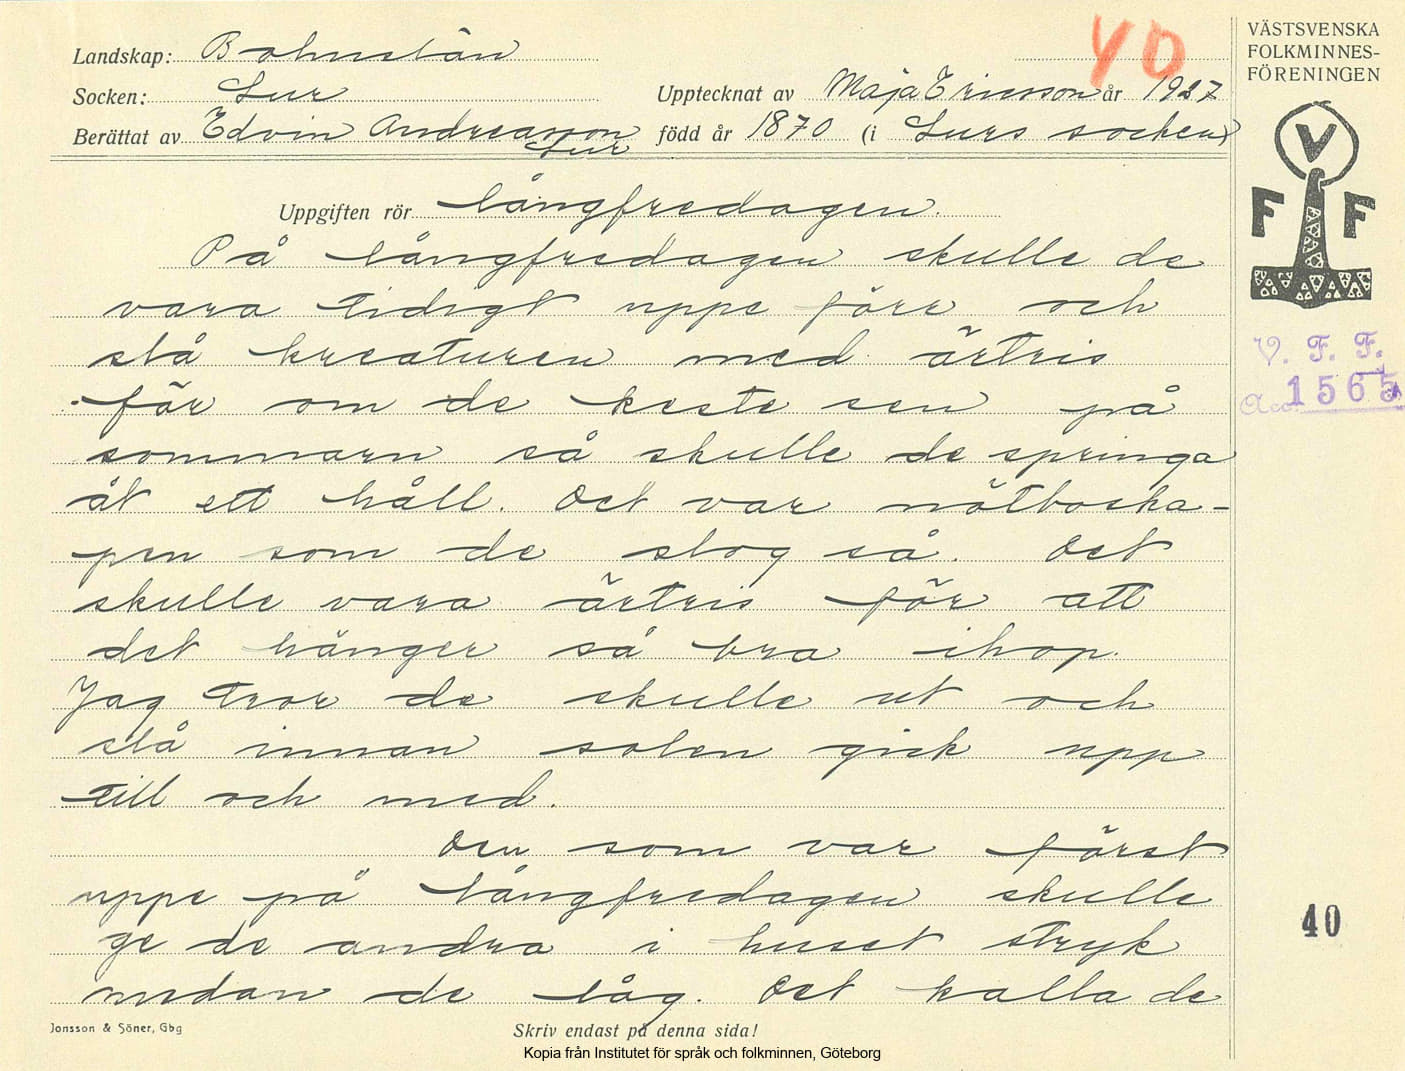 40
VÄSTSVENSKA
FOLKMINNES-
FÖRENINGEN
Landskap: Bohuslän
Socken: Lur
Upptecknat av Maja Ericsson år 1927
Berättat av Edvin Andreasson
Lur
född år 1870 (i Lurs socken)
V
F F
Uppgiften rör långfredagen.
På långfredagen skulle de
vara tidigt uppe förr och
slå kreaturen med ärtris
för om de keste sen på
sommarn så skulle de springa
åt ett håll. Det var nötboska-
pen som de slog så. Det
skulle vara ärtris för att
det hänger så bra ihop.
Jag tror de skulle ut och
slå innan solen gick upp
till och med.
Den som var först
uppe på långfredagen skulle
ge de andra i huset stryk
medan de låg. Det kalla de
V. F. F.
Acc. 1565
40
Jonsson & Söner, Gbg
Skriv endast på denna sida!
Kopia från Institutet för språk och folkminnen, Göteborg